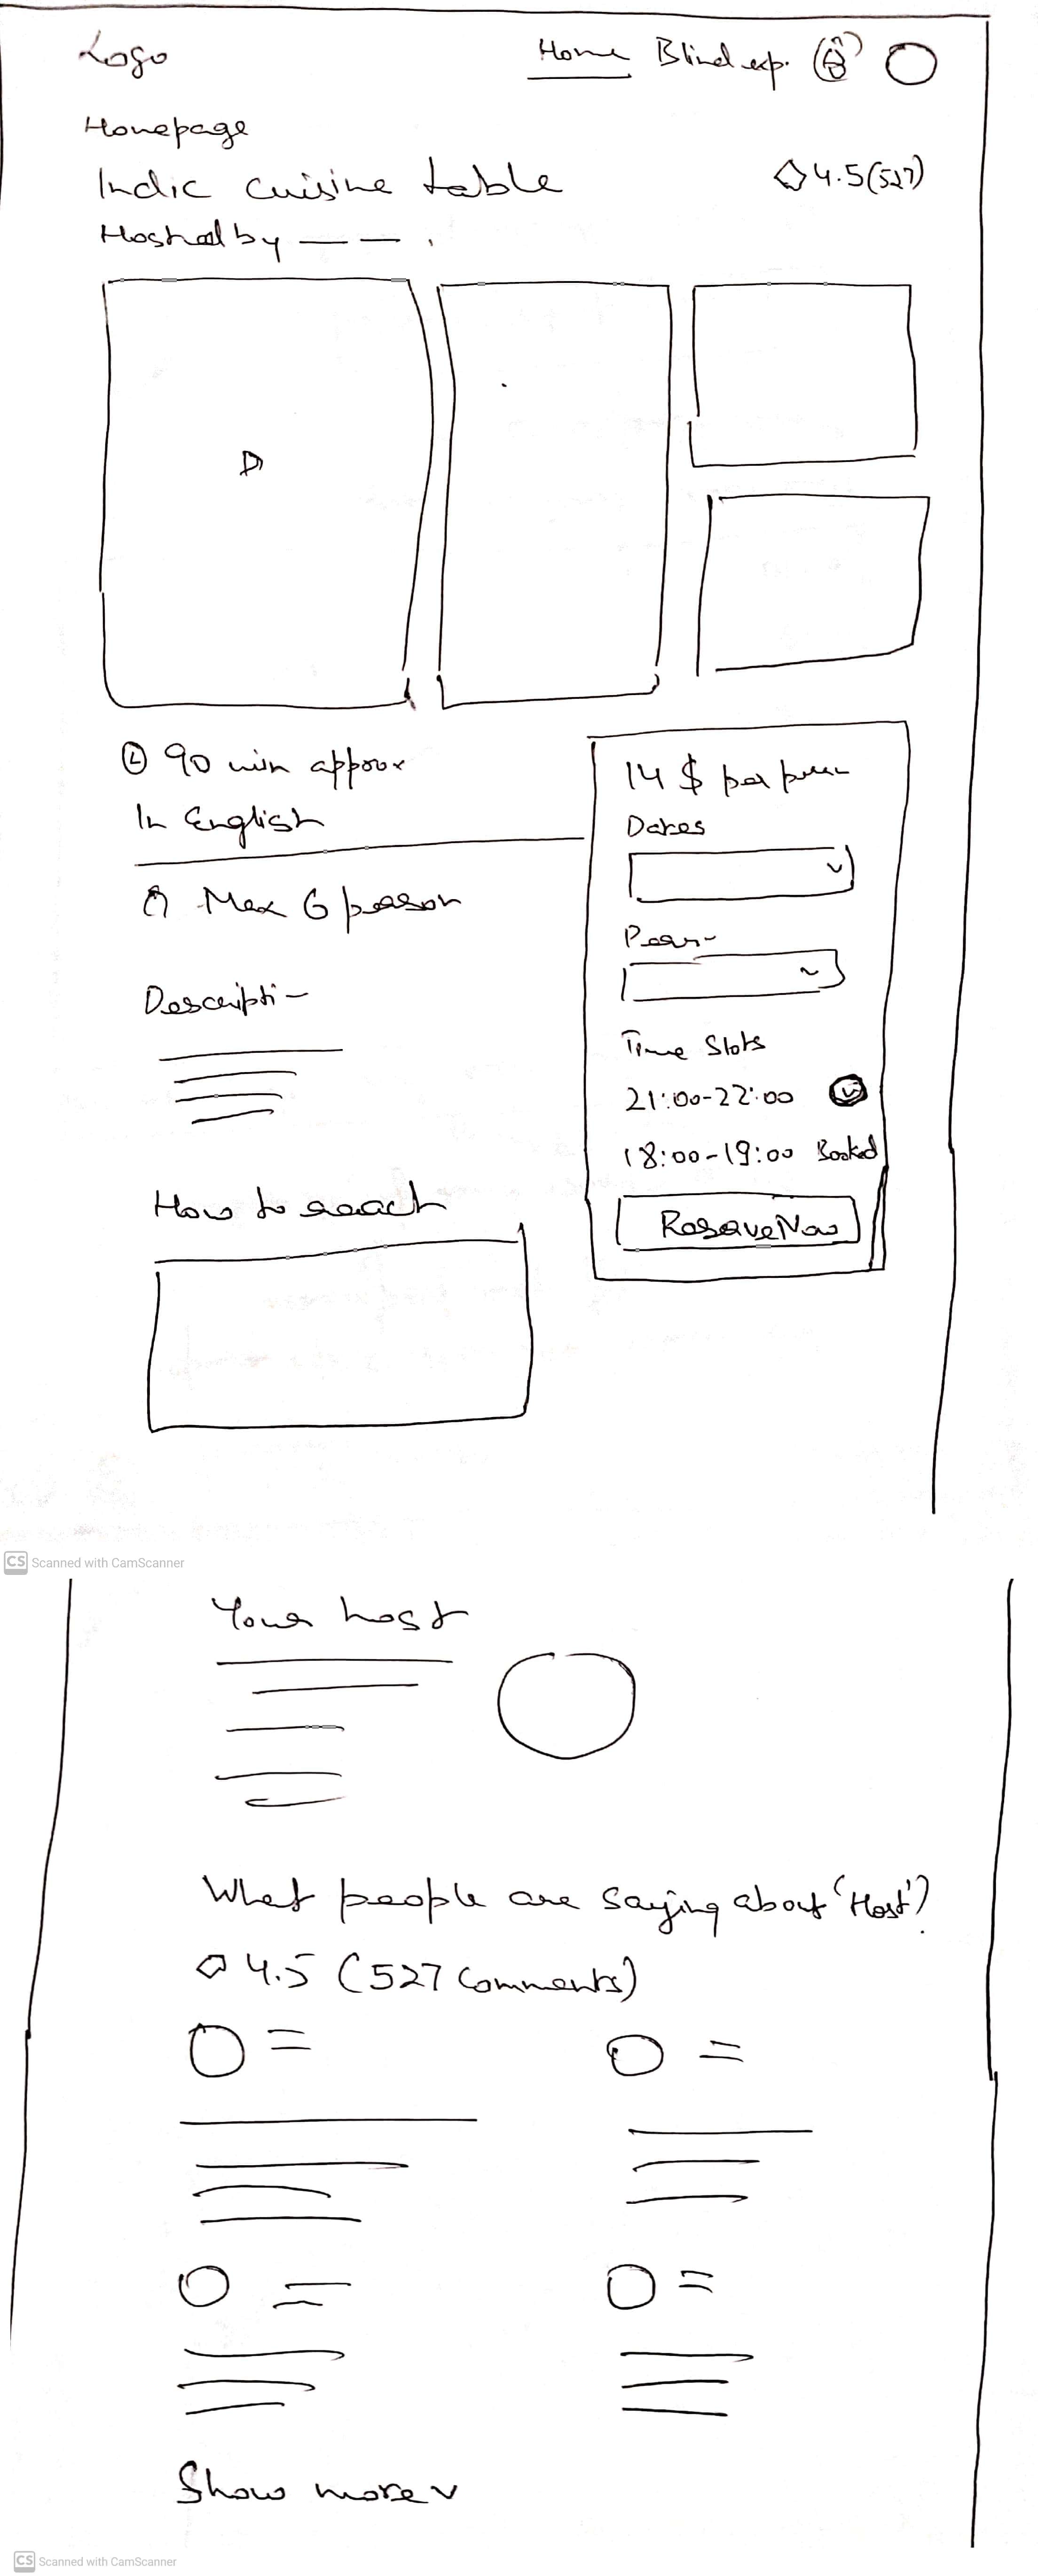 Logo
Home Blind exp.
Homepage
Indic cuisine table
4.5 (527)
Hosted by
90 min approx
In English
Max 6 person
Description
How to reach
14 $ per
Dates
Time Slots
21:00-22:00
18:00-19:00 Booked
Reserve Now
CS Scanned with CamScanner
Your host
What people are saying about 'Host'?
4.5 (527 Comments)
Show more
CS Scanned with CamScanner